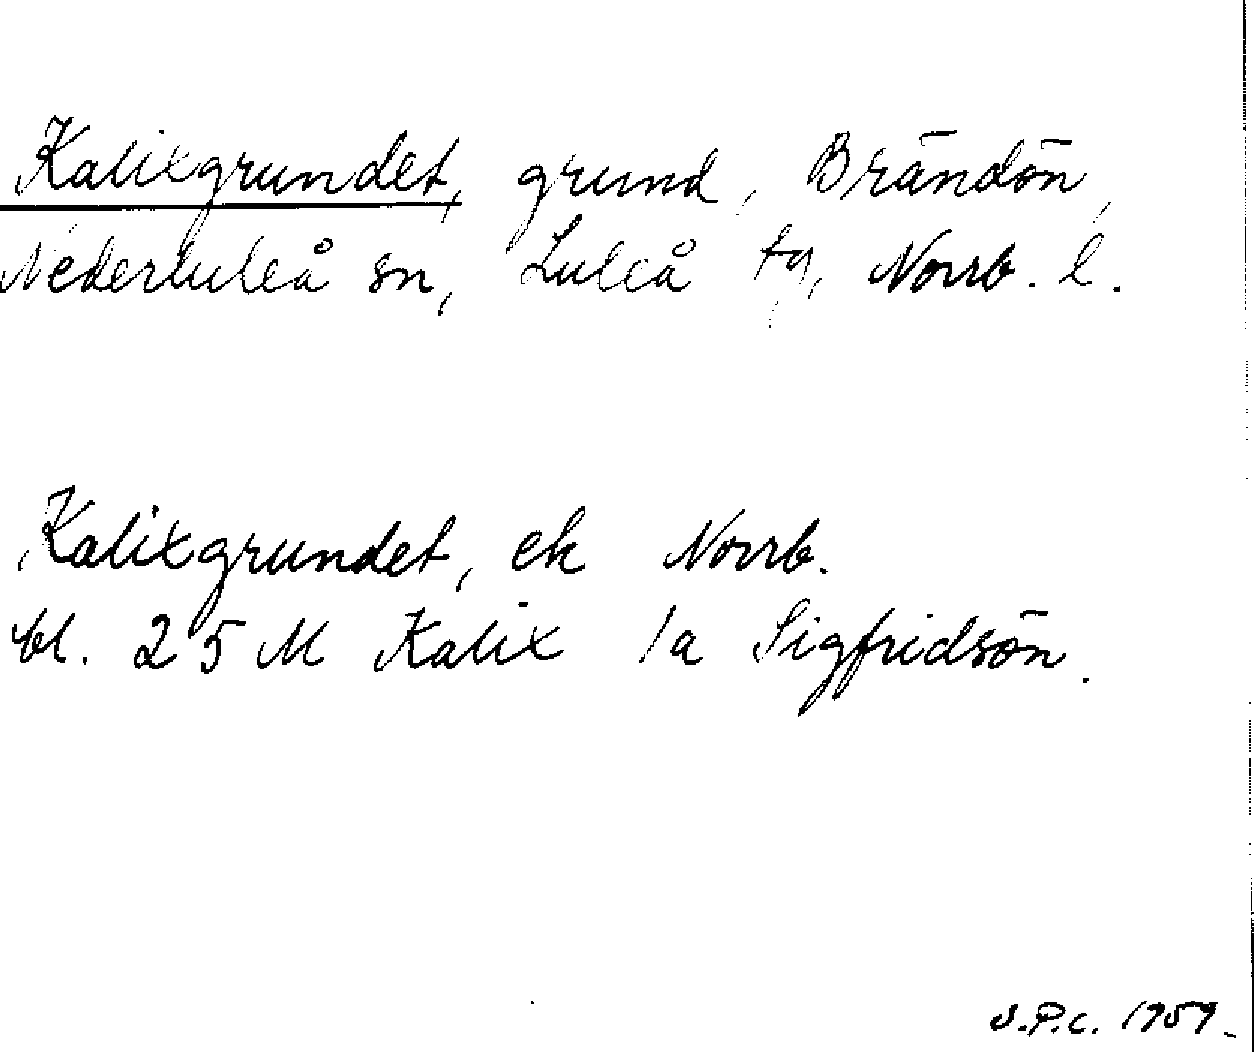 Kalixgrundet, grund, Brändön,
Nederluleå sn, Luleå tg, Norrb. l.
Kalixgrundet, ek Norrb.
bl. 25 M Kalix 1a Sigfridsön.
S.P.C. 1959.